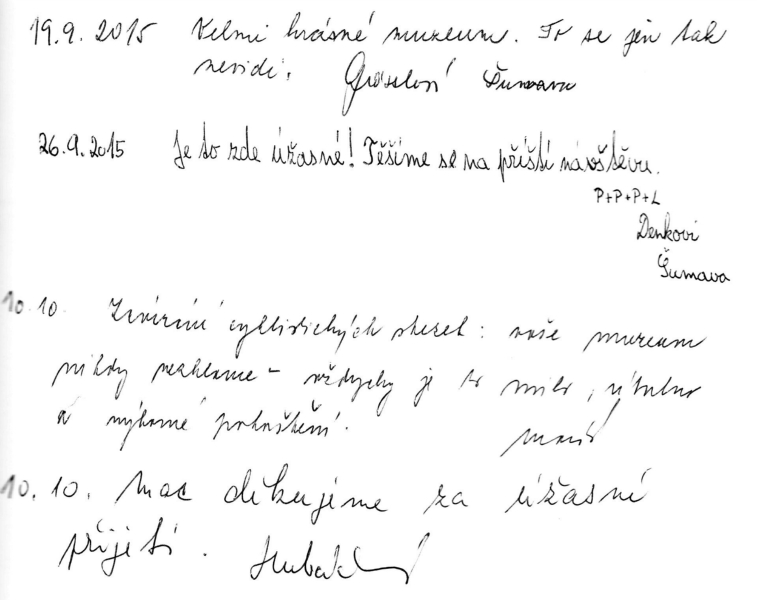 19.9. 2015 Velmi krásné muzeum. To se jen tak
nevidí. Šumava
26.9.2015 Je to zde úžasné! Těšíme se na příští návštěvu.
P+P+P+L
Denkovi
Šumava
10.10. cyklistických stezek : vaše muzeum
nikdy nezklame – vždycky je to milé, útulné
a výborné pohoštění.
10.10. Moc děkujeme za úžasné
přijetí.